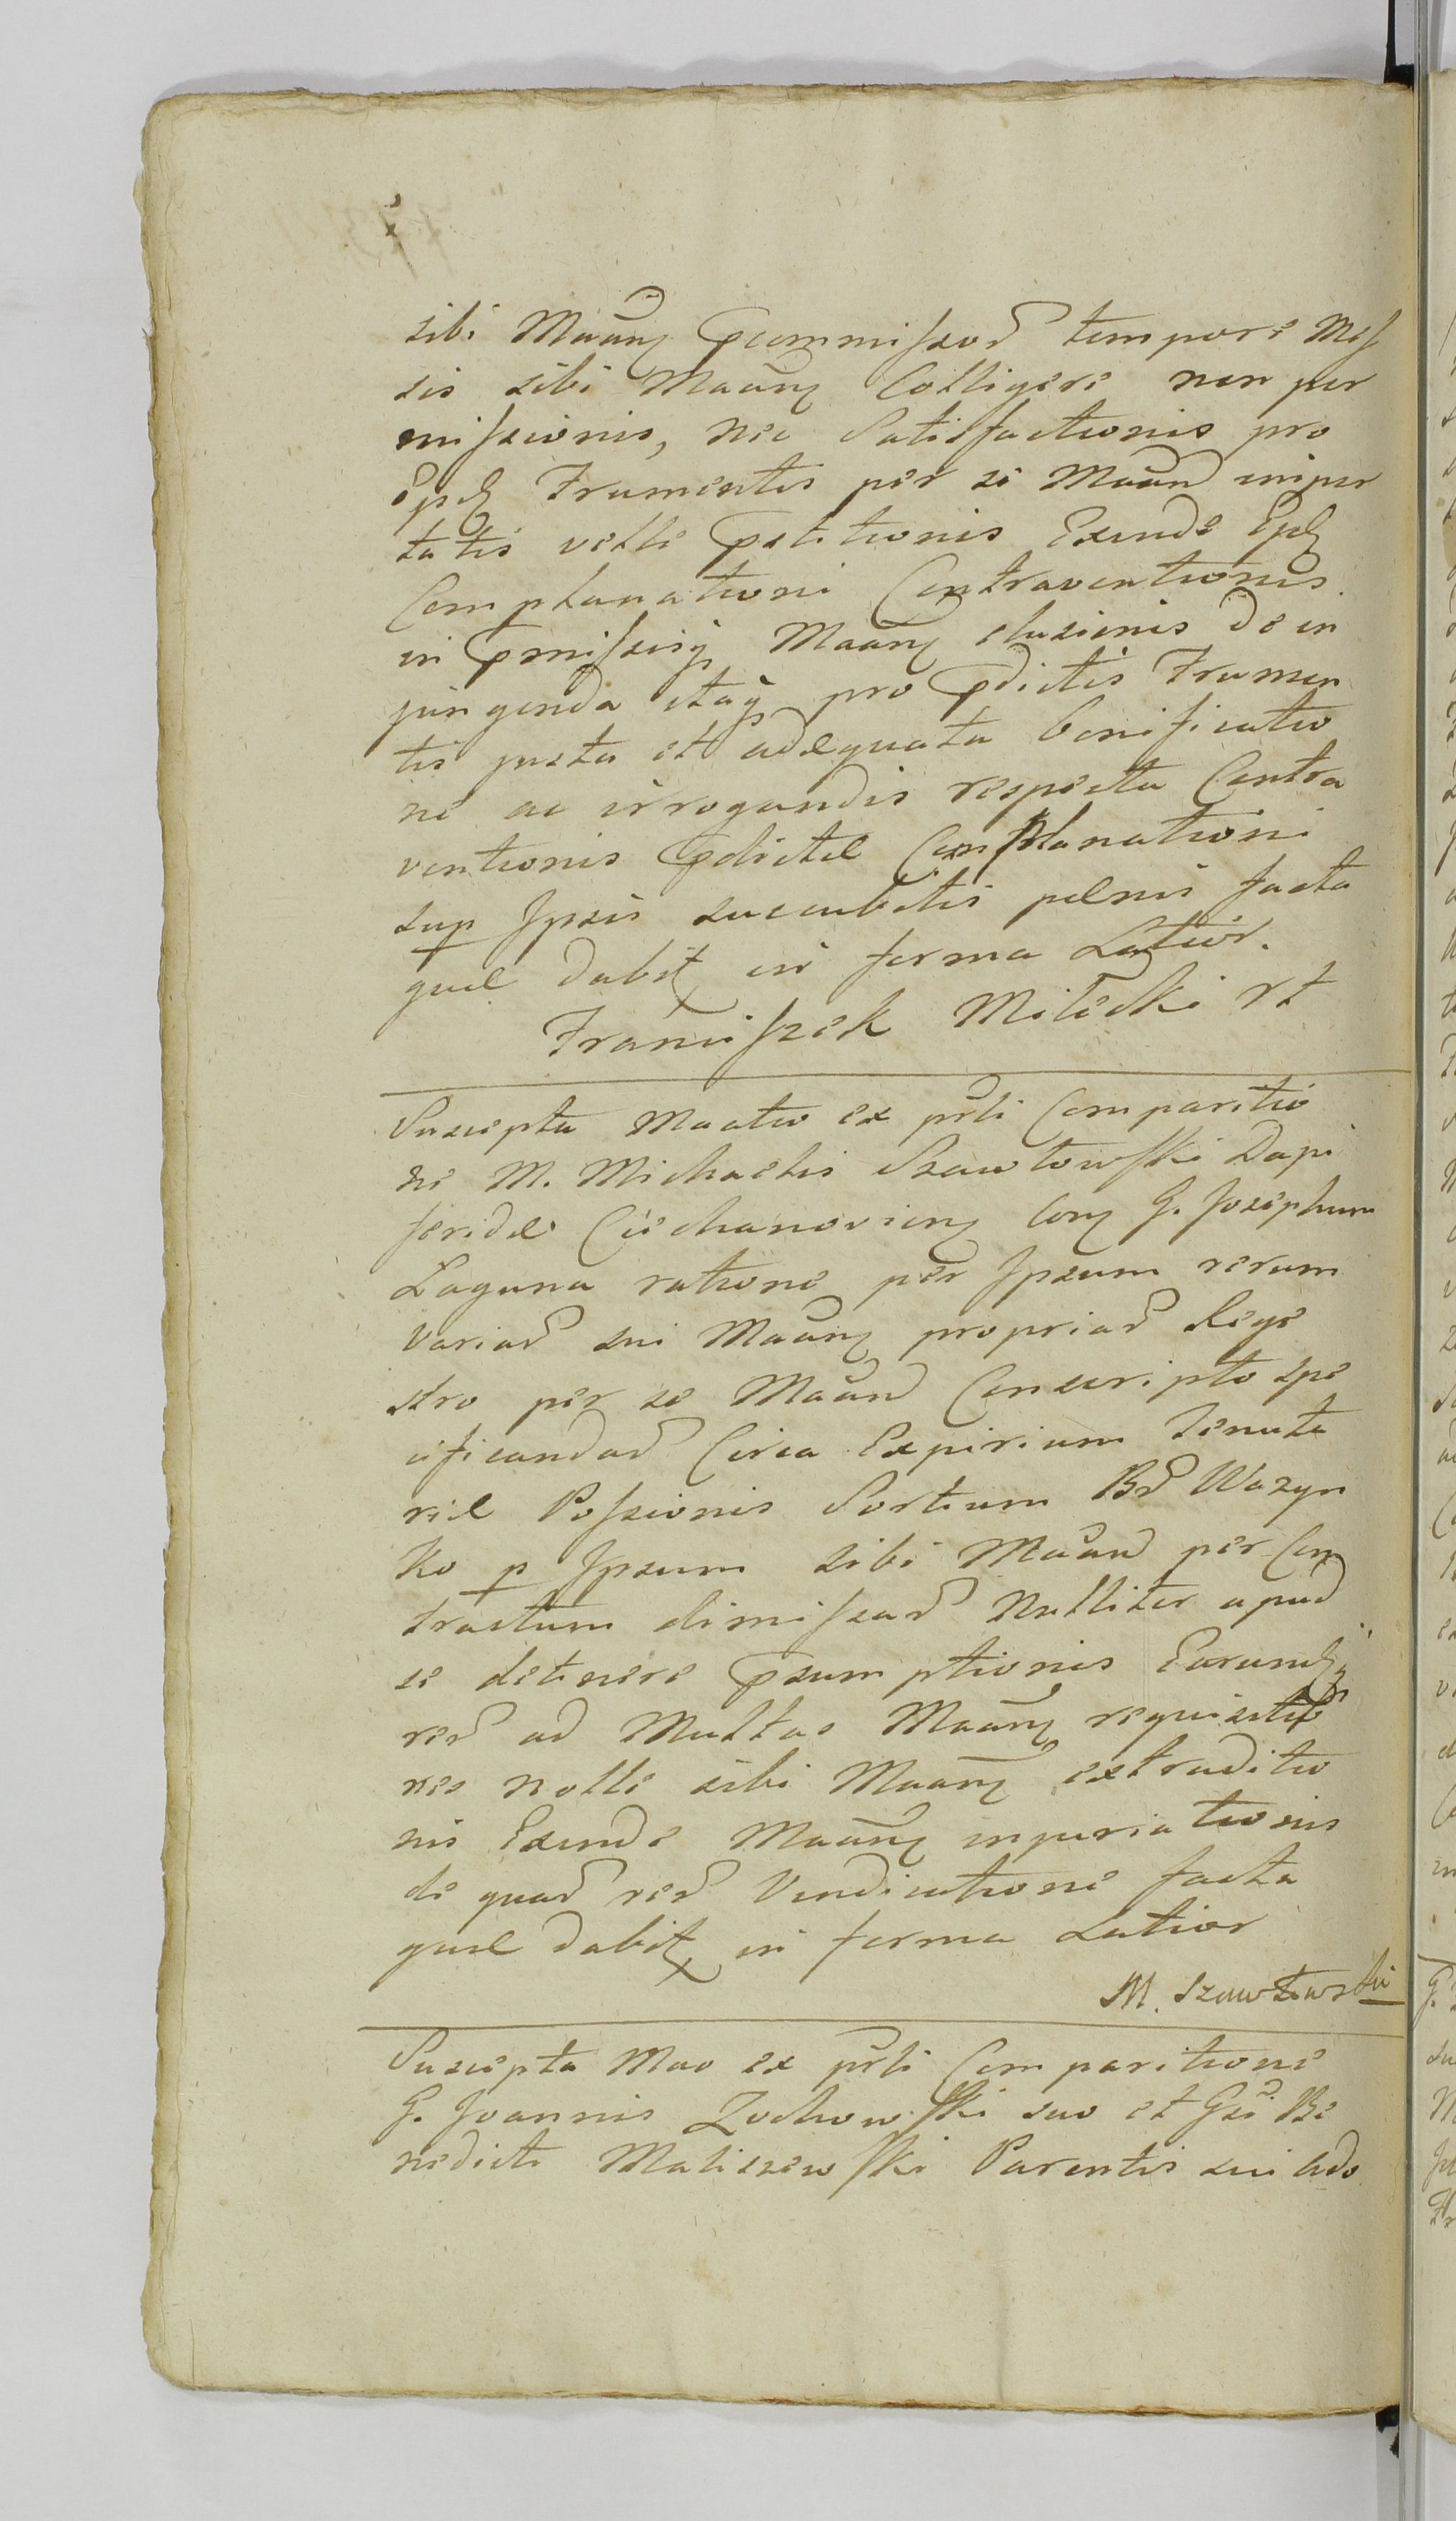 sibi Maãnt Pcommissad tempore Mes
sis sibi Maãnt Colligere non per
missionis, nec Satisfactionis pro
Epd Frumentis per se Maand imper
tatis velle Ptitionis Exinde Epd
Complanationi Contraventionis
in Pmissis Maãnt elusionis de in
jungenda itaq pro Pdictis Frumen
tis justa et adequata bonificatio
ne ac irrogandis respectu Contra
ventionis Pdictæ Complanationi
sup Ipsis succubitis pænis facta
quæ dabit in forma Latior.
Franciszek Miłedki rt
Suscepta Maatio ex pñti Comparitio
ne M. Michaelis Szawłowski Dapi
feridæ Ciechanoviens Con G. Josephum
Laguna ratione per Ipsum rerum
variad sui Maãnt propriad Rege
stro per se Maand Conscripto spe
cificandad Circa Expirium Tenuta
riæ Possionis Sortium Bd Wazyn
ko p Ipsum sibi Maand per Con
tractum dimissad Nulliter apud
se detinere Psumptionis Earund
red ad Multas Maãnt requisitio
nes nolle sibi Maãnt extraditio
nis Exinde Maãnt injuriationis
de quad red Vindicatione facta
quæ dabit in forma Latior
M. Szawłowski
Suscepta Mao ex pñti Comparitione
G. Joannis Zochowski suo et Gsi Be
nedicti Maliszewski Parentis sui ado